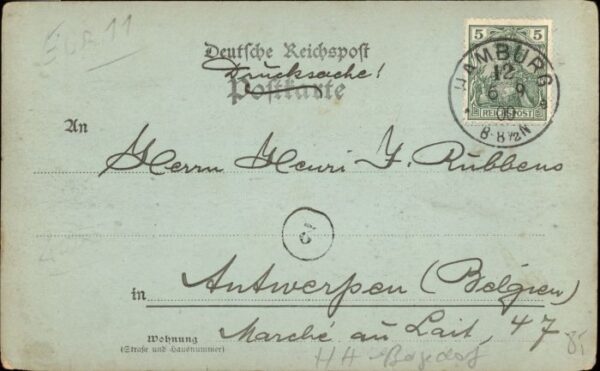 Deutsche Reichspost
Drucksache!
Postkarte
5 5
REICHSPOST
HAMBURG
12
6 9
00
8-8½N
An
Herrn Henri J. Rubbens
in Antwerpen (Belgien)
Wohnung
(Straße und Hausnummer)
Marché au Lait, 47